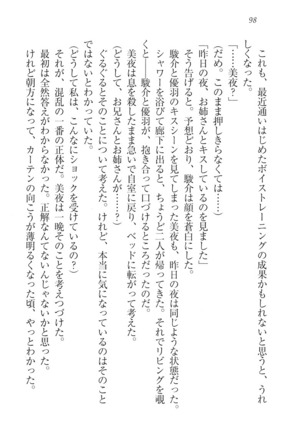 98
これも、最近通いはじめたボイストレーニングの成果かもしれないと思うと、うれ
しくなった。
「……美夜？」
(だめ。このまま押しきらなくては……)
「昨日の夜、お姉さんとキスしているのを見ました」
そう告げると、予想どおり、駿介は顔を蒼白にした。
駿介と優羽のキスシーンを見てしまった美夜も、昨日の夜は同じような状態だった。
シャワーを浴びて廊下に出ると、ちょうど二人が帰ってきた。それでリビングを覗
くと――駿介と優羽が、抱き合って口づけるところだったのだ。
美夜は息を殺したまま急いで自室に戻り、ベッドに転がって考えた。
(どうして、お兄さんとお姉さんが……？)
ぐるぐるとそのことについて考えた。けれど、本当に気になっているのはそのこと
ではないとわかっていた。
(どうして私は、こんなにショックを受けているの？)
それが、混乱の一番の正体だ。美夜は一晩そのことを考えつづけた。
最初は全然答えがわからなかった。正解なんてないんじゃないかとさえ思った。
けれど朝方になって、カーテンの向こうが薄明るくなった頃、やっとわかった。